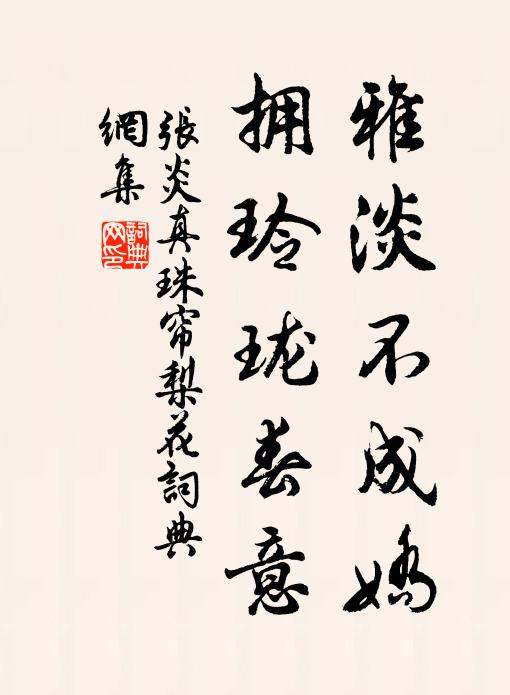 雅淡不成嬌
拥玲珑春意
張炎真珠帘梨花詞典
網集
詞典
网印